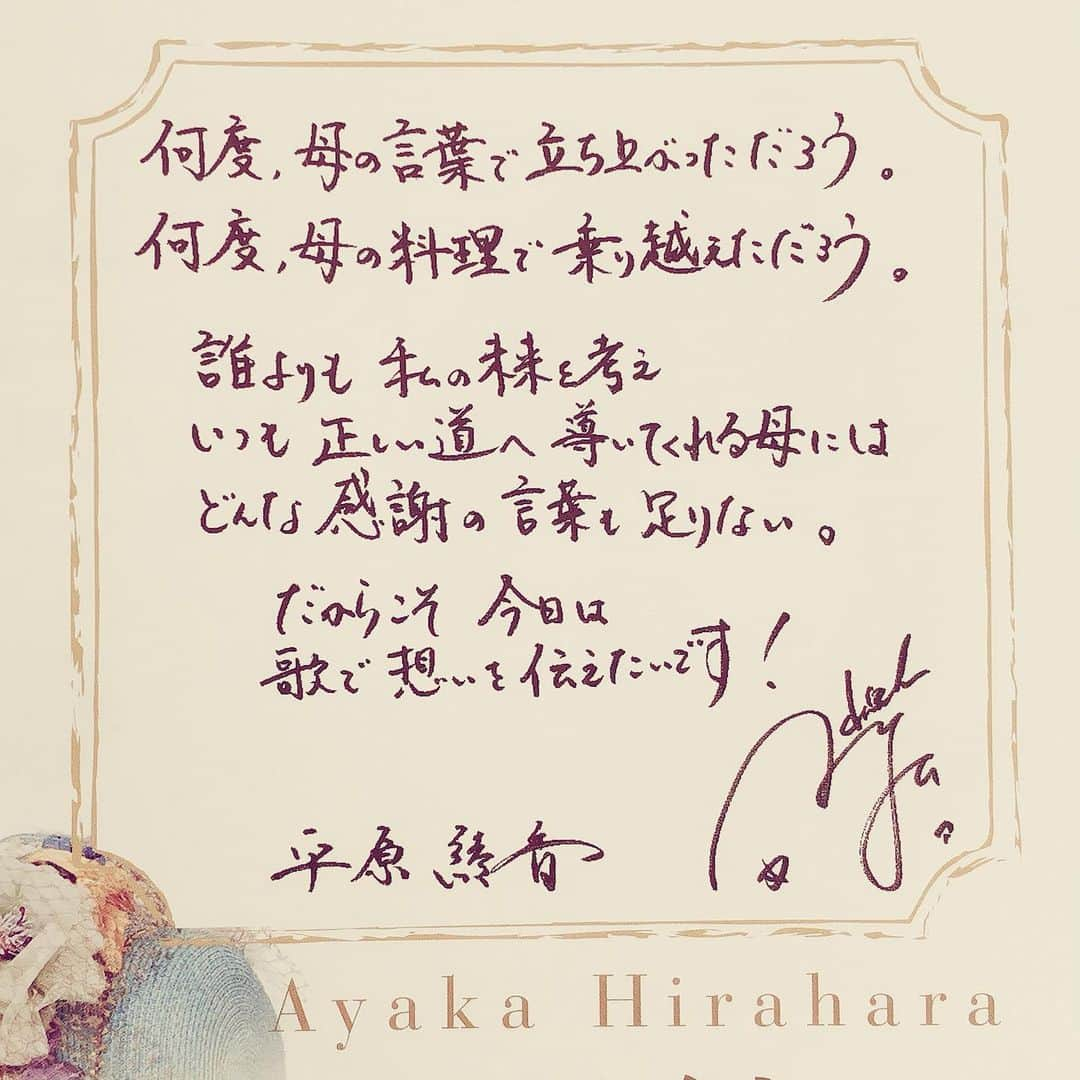 何度,母の言葉で立ち上がっただろう。
何度,母の料理で乗り越えただろう。
誰よりも 私の未来を考え
いつも 正しい道へ 導いてくれる母には
どんな感謝の言葉も 足りない。
だからこそ 今日は
歌で想いを伝えたいです!
平原綾香
Ayaka Hirahara